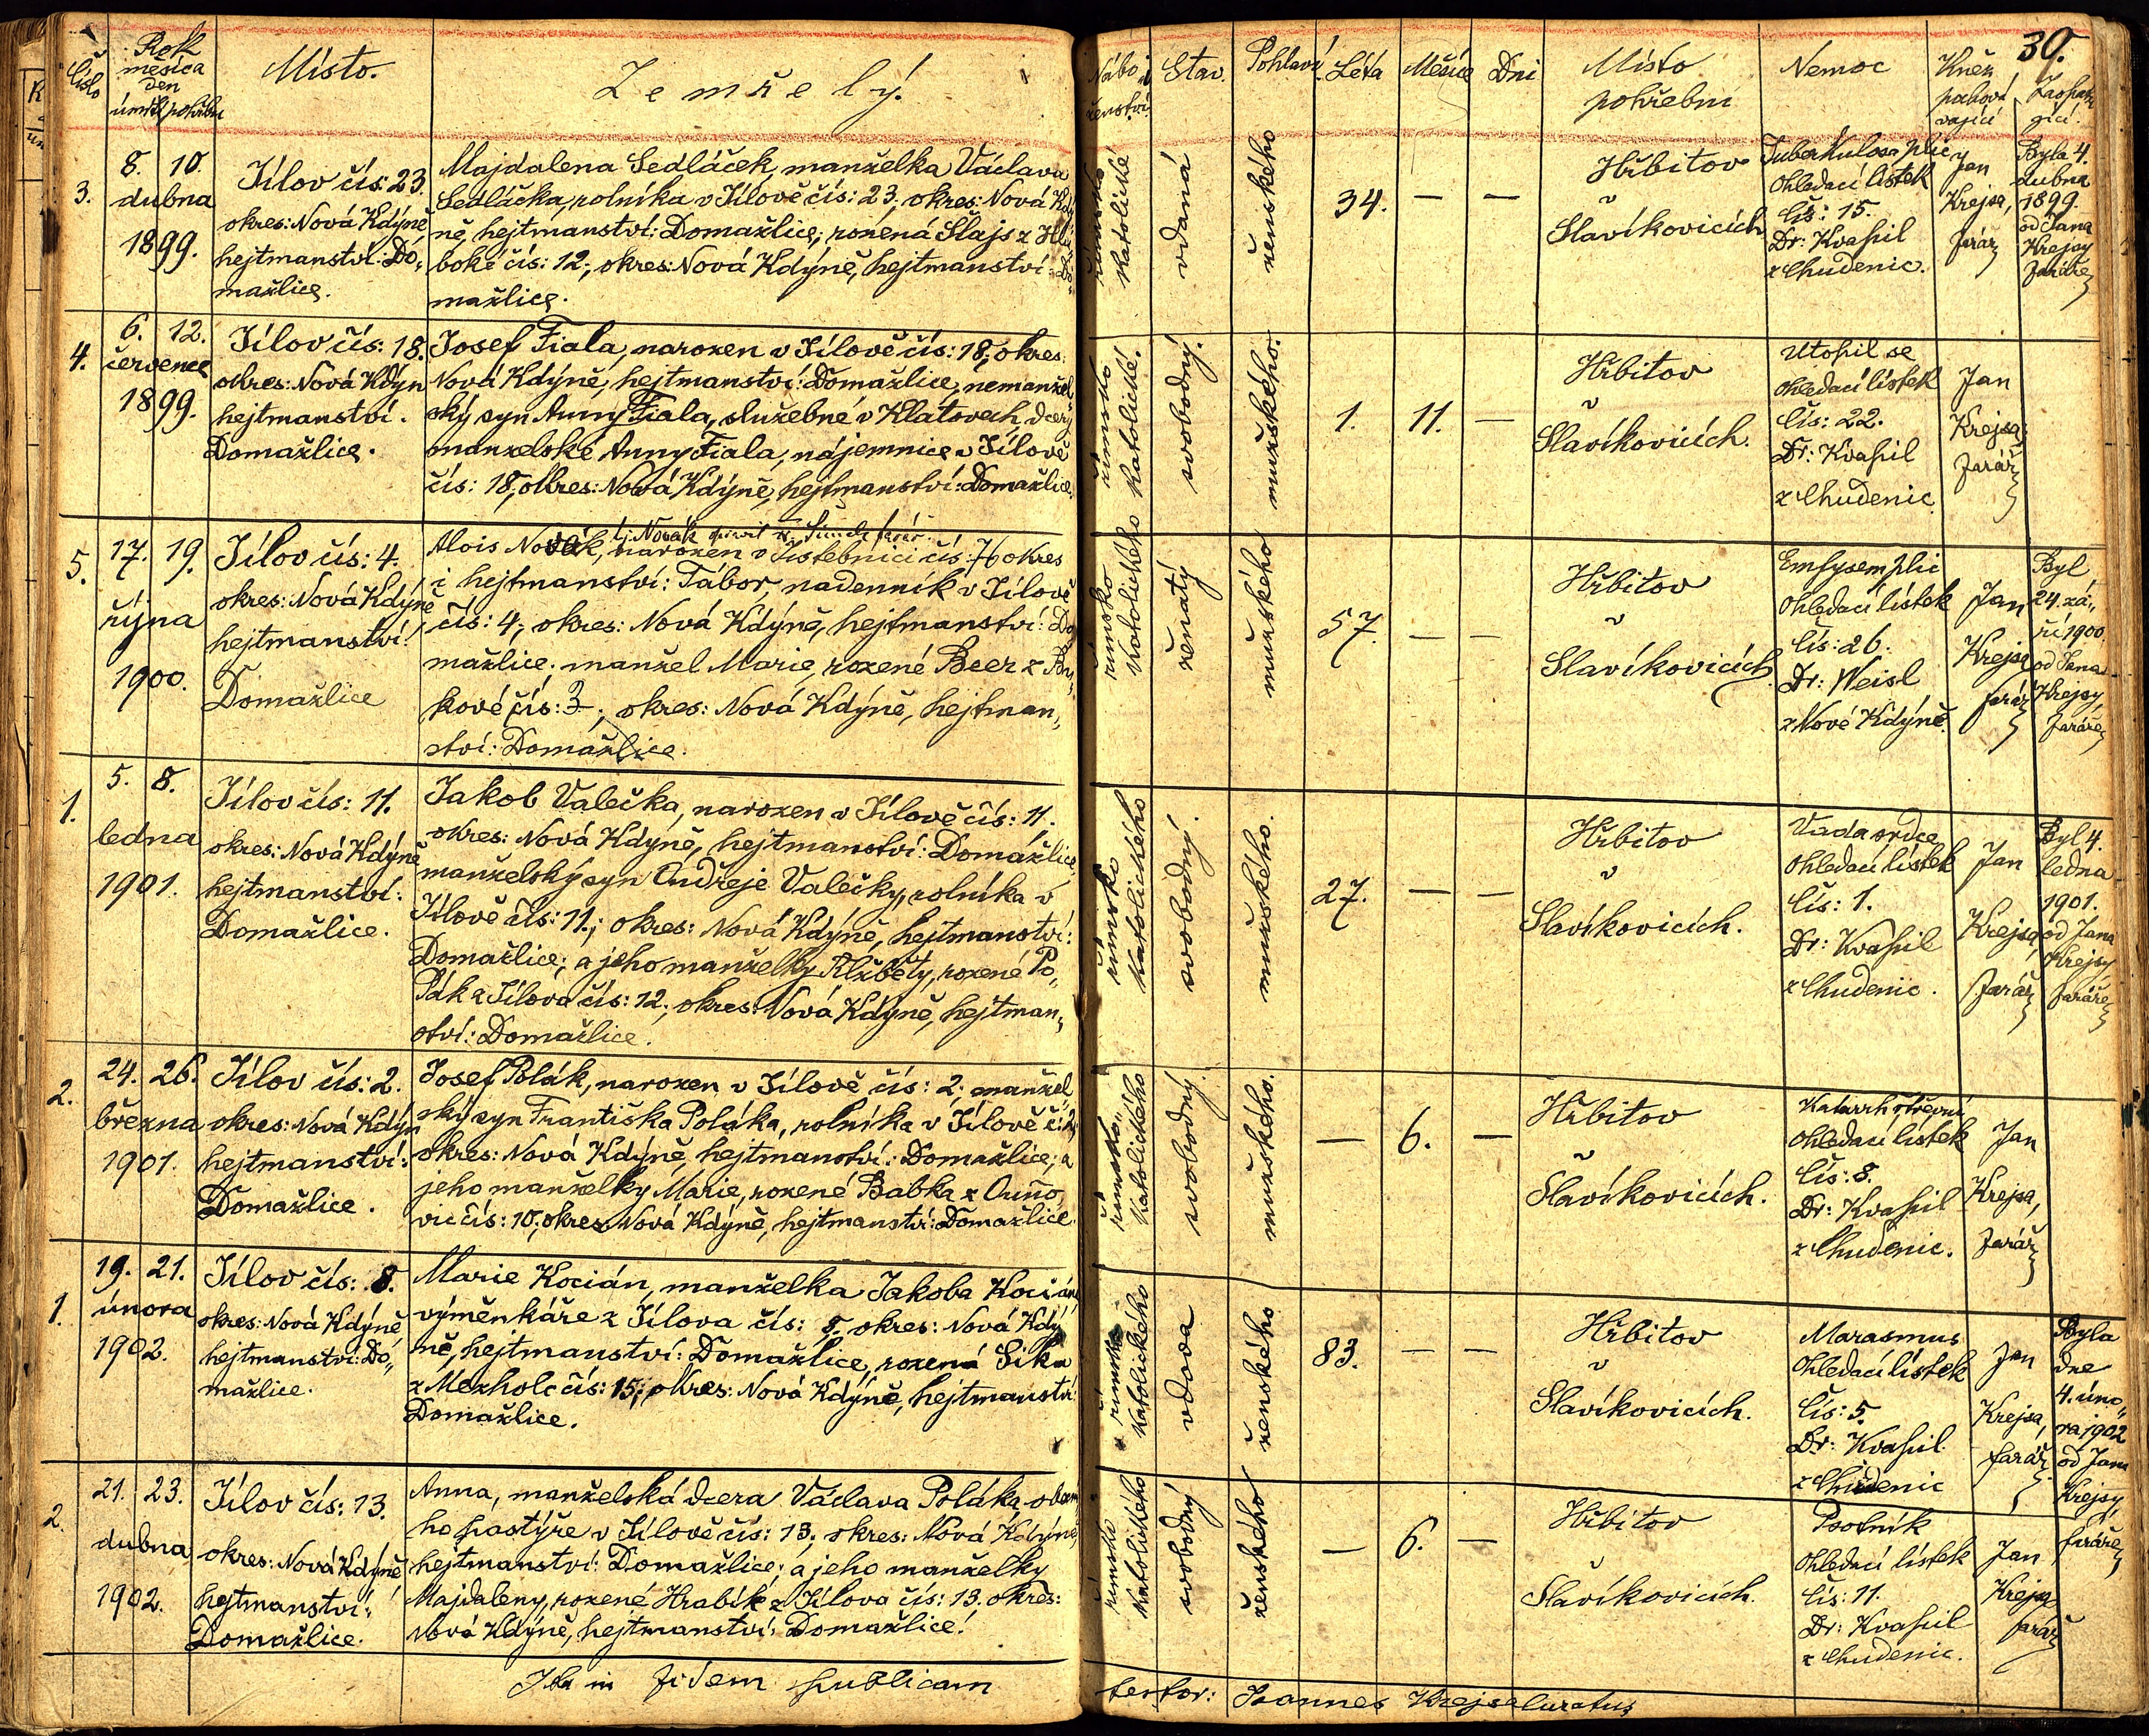 30.
Číslo
Rok
měsíc a
den
úmrtí pohřbu
Místo.
Zemřelý.
Nábo-
ženství.
Stav.
Pohlaví
Léta
Měsíce
Dni
Místo
pohřební
Nemoc
Kněz
pochová
vající
3.
8. 10.
dubna
1899.
Jílov čís: 23.
okres: Nová Kdýně
hejtmanství: Do„
mažlice.
Majdalena Sedláček, manželka Václava
Sedláčka, rolníka v Jílově čís: 23, okres: Nová Kdý
ně, hejtmanství: Domažlice, rozená Šlajs z Hlu
boké čís: 12, okres: Nová Kdýně, hejtmanství: Do„
mažlice.
římsko
katolické
vdaná
ženského
34. — —
Hřbitov
v
Slavíkovicích
Tuberkulosa plic
Ohledací lístek
čís: 15.
Dr: Kvapil
z Chudenic.
Jan
Krejsa,
farář
Byla 4.
dubna
1899.
od Jana
Krejsy
faráře
4.
6. 12.
července
1899.
Jílov čís: 18.
okres: Nová Kdýn
hejtmanství.
Domažlice.
Josef Fiala, narozen v Jílově čís: 18, okres:
Nová Kdýně, hejtmanství: Domažlice, nemanžel
ský syn Anny Fiala, služebné v Klatovech, dcery
manželské Anny Fiala, nájemnice v Jílově
čís: 18, okres: Nová Kdýně, hejtmanství: Domažlice.
římsko
katolické.
svobodný.
mužského.
1. 11. —
Hřbitov
v
Slavíkovicích.
Utopil se
Ohledací lístek
čís: 22.
Dr: Kvapil
z Chudenic
Jan
Krejsa,
farář
5.
17. 19.
října
1900.
Jílov čís: 4.
okres: Nová Kdýně
hejtmanství:
Domažlice
tj. Novák
Alois Novák, narozen v Jistebnici čís: 76 okres
i hejtmanství: Tábor, nadenník v Jílově
čís: 4, okres: Nová Kdýně, hejtmanství: Do
mažlice, manžel Marie, rozené Beer z
kové čís: 3, okres: Nová Kdýně, hejtman„
ství: Domažlice.
římsko
katolického
ženatý
mužského
57. — —
Hřbitov
v
Slavíkovicích
Emfysem plic
Ohledací lístek
čís: 26.
Dr: Weisl
z Nové Kdýně.
Jan
Krejsa
farář
Byl
24. zá„
ří 1900
od Jana
Krejsy,
faráře
1.
5. 8.
ledna
1901.
Jílov čís: 11.
okres: Nová Kdýně
hejtmanství:
Domažlice.
Jakob Valečka, narozen v Jílově čís: 11.
okres: Nová Kdýně, hejtmanství: Domažlice
manželský syn Ondřeje Valečky, rolníka v
Jílově čís: 11.; okres: Nová Kdýně, hejtmanství:
Domažlice; a jeho manželky Alžběty, rozené Po„
lák z Jílova čís: 12, okres: Nová Kdýně, hejtman„
ství: Domažlice.
římsko
katolického
svobodný.
mužského.
27. — —
Hřbitov
v
Slavíkovicích.
Vada srdce
Ohledací lístek
čís: 1.
Dr: Kvapil
z Chudenic.
Jan
Krejsa,
farář
Byl 4.
ledna
1901.
od Jana
Krejsy
faráře
2.
24. 26.
března
1901.
Jílov čís: 2.
okres: Nová Kdýn
hejtmanství:
Domažlice.
Josef Polák, narozen v Jílově čís: 2; manžel
ský syn Františka Poláka, rolníka v Jílově č: 2,
okres: Nová Kdýně, hejtmanství: Domažlice; a
jeho manželky Marie, rozené Babka z
vic čís: 10, okres Nová Kdýně, hejtmanství: Domažlice.
římsko„
katolického
svobodný.
mužského.
— 6. —
Hřbitov
v
Slavíkovicích.
Katarrh střevní
Ohledací lístek
čís: 8.
Dr: Kvapil
z Chudenic.
Jan
Krejsa,
farář
1.
19. 21.
února
1902.
Jílov čís: 8.
okres: Nová Kdýně
hejtmanství: Do„
mažlice.
Marie Kocián, manželka Jakoba Kociána
výměnkáře z Jílova čís: 8. okres: Nová Kdý
ně, hejtmanství: Domažlice, rozená Sika
z Mezholc čís: 15; okres: Nová Kdýně, hejtmanství
Domažlice.
římsko
katolického
vdova
ženského
83. — —
Hřbitov
v
Slavíkovicích.
Marasmus
Ohledací lístek
čís: 5.
Dr: Kvapil
z Chudenic
Jan
Krejsa,
farář
Byla
dne
4. úno„
ra 1902
od Jana
Krejsy,
faráře
2.
21. 23.
dubna
1902.
Jílov čís: 13.
okres: Nová Kdýně
hejtmanství:
Domažlice.
Anna, manželská dcera Václava Poláka
ho pastýře v Jílově čís: 13, okres: Nová Kdýně,
hejtmanství: Domažlice; a jeho manželky
Majdaleny, rozené Hrabík z Jílova čís: 13. okres:
Nová Kdýně, hejtmanství: Domažlice.
římsko
katolického
svobodný
ženského
— 6. —
Hřbitov
v
Slavíkovicích.
Psotník
Ohledací lístek
čís: 11.
Dr: Kvapil
z Chudenic.
Jan
Krejsa
farář
Ita in fidem publicam
testor: Joannes Krejsa Curatus